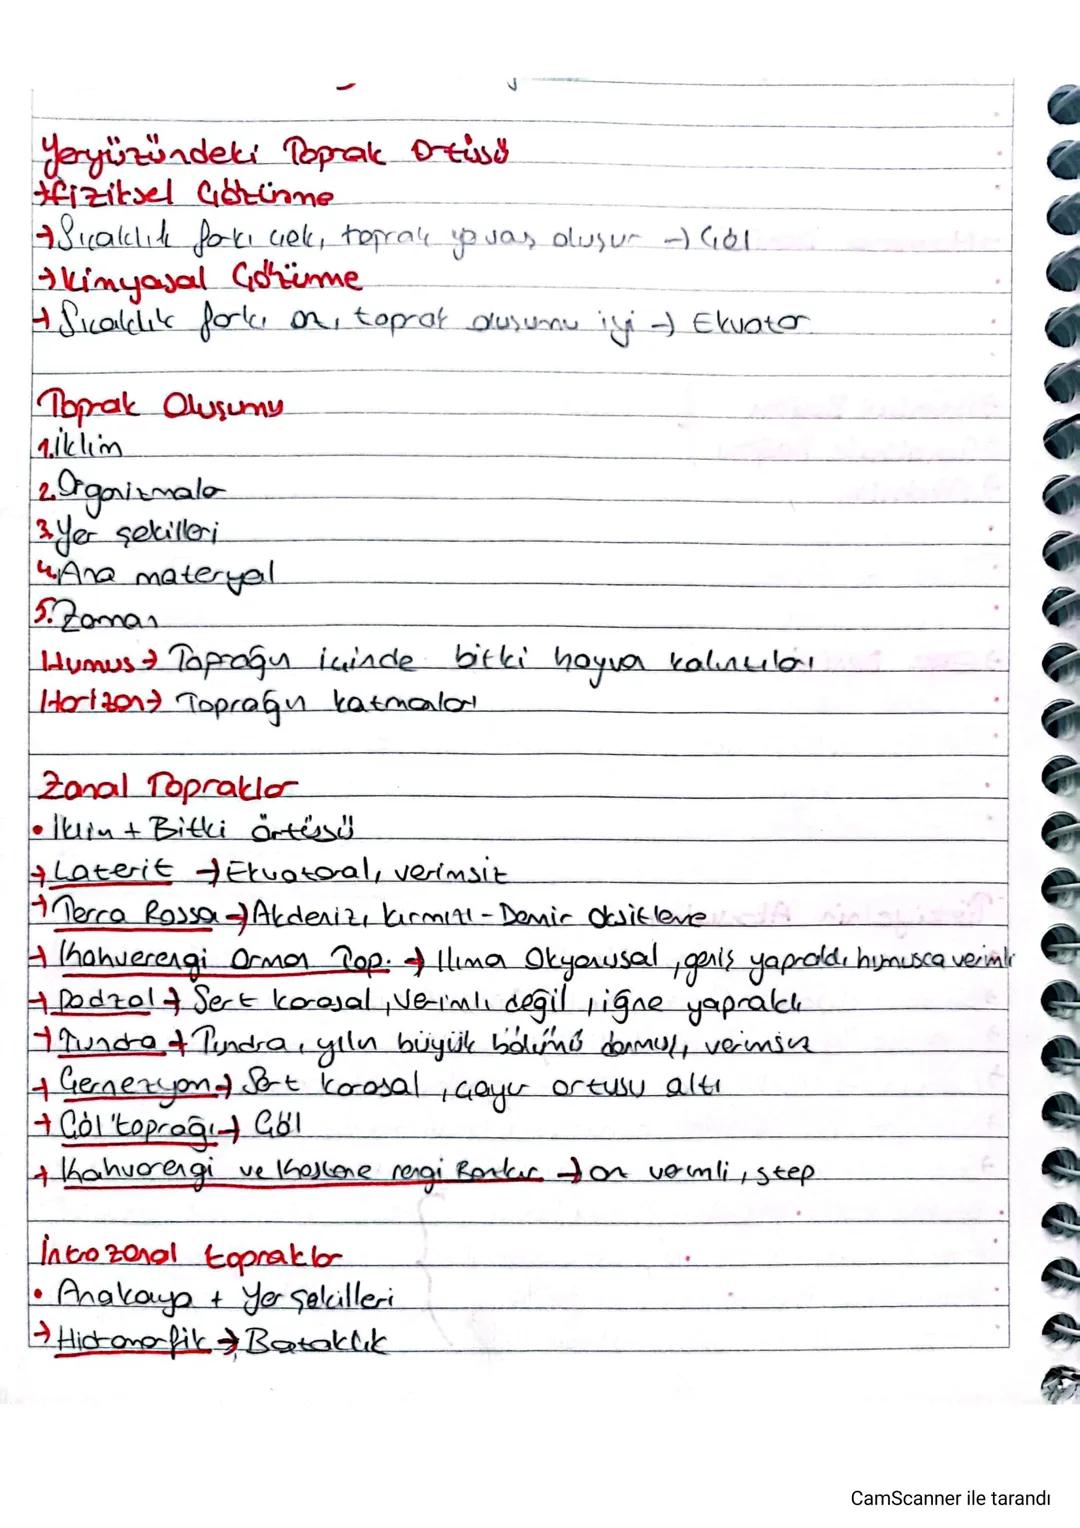 Yeryüzündeki Toprak Örtüsü
→Fiziksel Çözünme
→Sıcaklık farkı çok, toprak yavaş oluşur → Çöl
→Kimyasal Çözünme
→Sıcaklık farkı az, toprak oluşumu iyi → Ekvator
Toprak Oluşumu
1.İklim
2.Organizmalar
3.Yer şekilleri
4.Ana materyal
5.Zaman
Humus→ Toprağın içinde bitki hayvan kalıntıları
Horizon→ Toprağın katmanları
Zonal Topraklar
• İklim + Bitki örtüsü
→Laterit →Ekvatoral, verimsiz
→Terra Rossa→Akdeniz, kırmızı-Demir Oksitleme
→Kahverengi Orman Top. → Ilıman Okyanusal, geniş yapraklı, humusca verimli
→Podzol→ Sert karasal, Verimli değil, iğne yapraklı
→Tundra→ Tundra, yılın büyük bölümü donmuş, verimsiz
→Çernezyom→ Sert karasal, çayır örtüsü altı
→Çöl toprağı→ Çöl
→Kahverengi ve Kestane rengi Bozkır →az verimli, step
İntrazonal topraklar
• Anakaya + Yer Şekilleri
→Hidromorfik→Bataklık
CamScanner ile tarandı